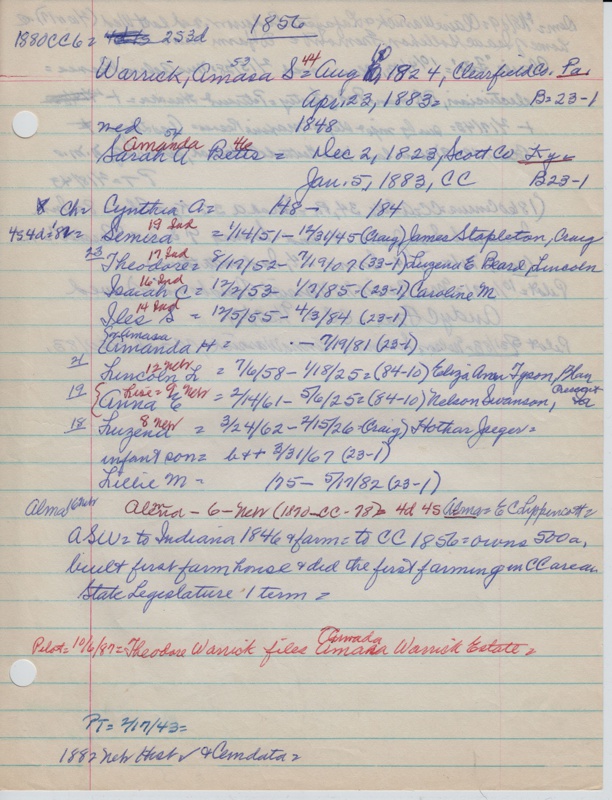 1856
1880CC6= 253d
Warrick, Amasa S 53 44 = Aug 10, 1824, Clearfield Co. Pa
Apr. 23, 1883= B=23-1
med 1848
Sarah A Betts = Dec 2, 1823, Scott Co Ky
Amanda 54 46
Jan. 5, 1883, CC B23-1
Ch= Cynthia A= '48 - '84
Semira 19 Ind = 1/14/51 - 12/31/45 (Craig) James Stapleton, Craig
23 Theodore 17 Ind = 8/19/52 - 7/19/07 (33-1) Luzena E Beard, Lincoln
Isaiah C 16 Ind = 12/2/53 1/7/85 - (23-1) Caroline M
Iles S 14 Ind = 12/5/55 - 4/3/84 (23-1)
Amasa
Amanda H = - 7/19/81 (23-1)
21 Lincoln L 12 Neb = 7/6/58 - 1/18/25 = (84-10) Eliza Ann Tyson, Plan
19 Anna E 9 Neb = 2/14/61 - 5/6/25 = (84-10) Nelson Swanson,
18 Luzena 8 Neb = 3/24/62 - 2/15/26 - Craig) Hothar Jaeger=
infant son= b++ 3/31/67 (23-1)
Lillie M = '75 - 5/17/82 (23-1)
Alma 6 Neb Alma - 6 - Neb (1870-CC-78)= 4d 45 Alma= E C Lippincott=
ASW= to Indiana 1846 & farm= to CC 1856= owns 500a,
built first farm house & did the first farming in CC area
State Legislature 1 term =
Pilot= 10/6/87= Theodore Warrick files Amanda Warrick Estate=
PT= 2/17/43=
1882 Neb Hist & Cemdata=